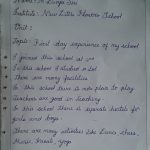 Institute:- New Little Flowers School
Unit:
Topic: First day experience of my school
I joined this school at
In this school I studied in
There are many facilities
In this school there is not place to play
Teachers are good in teaching
In this school there is separate hostel for
girls and boys.
There are many activities like Dance class,
Music, Karate, yoga